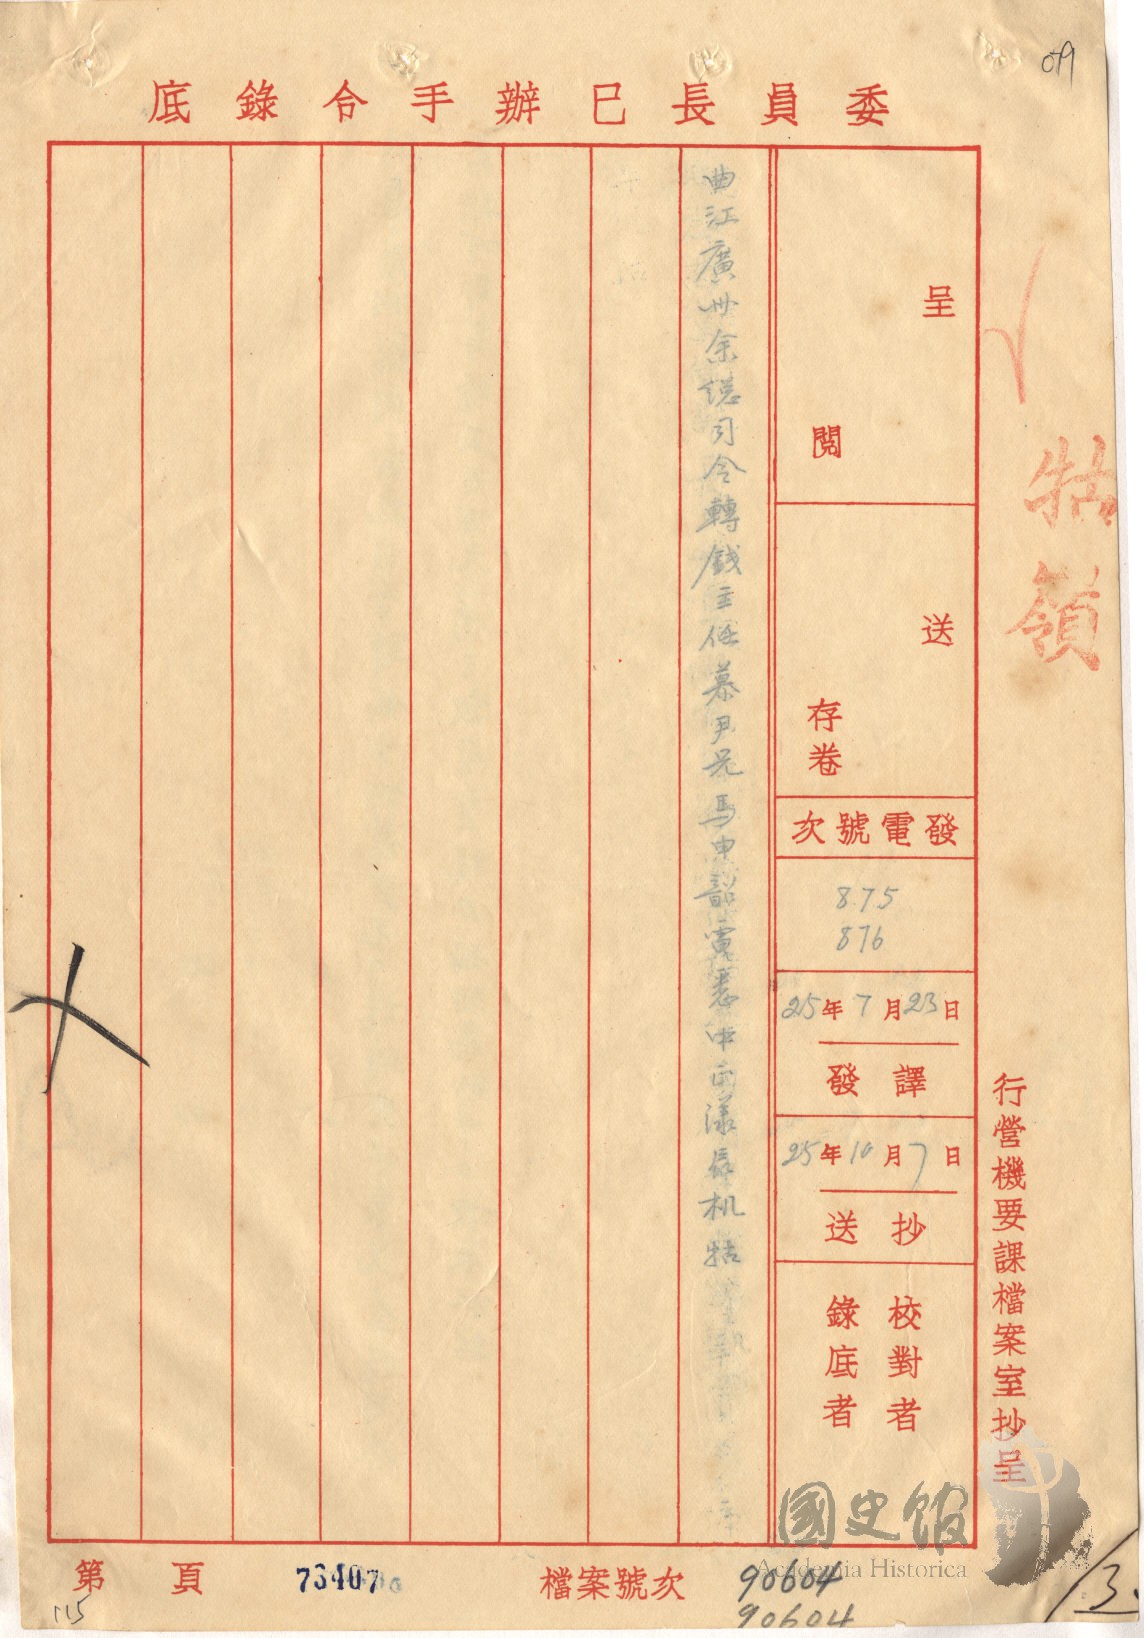 019
委員長已辦手令錄底
牯嶺
行營機要課檔案室抄呈
呈
閱
送
存卷
發電號次
875
876
25年7月23日
譯發
25年10月7日
抄送
校對者
錄底者
曲江廣州余總司令轉錢主任慕尹兄馬申韶電悉中正漾辰机牯
檔案號次
90604
90604
73407
第 頁
115
13.
國史館
Academia Historica